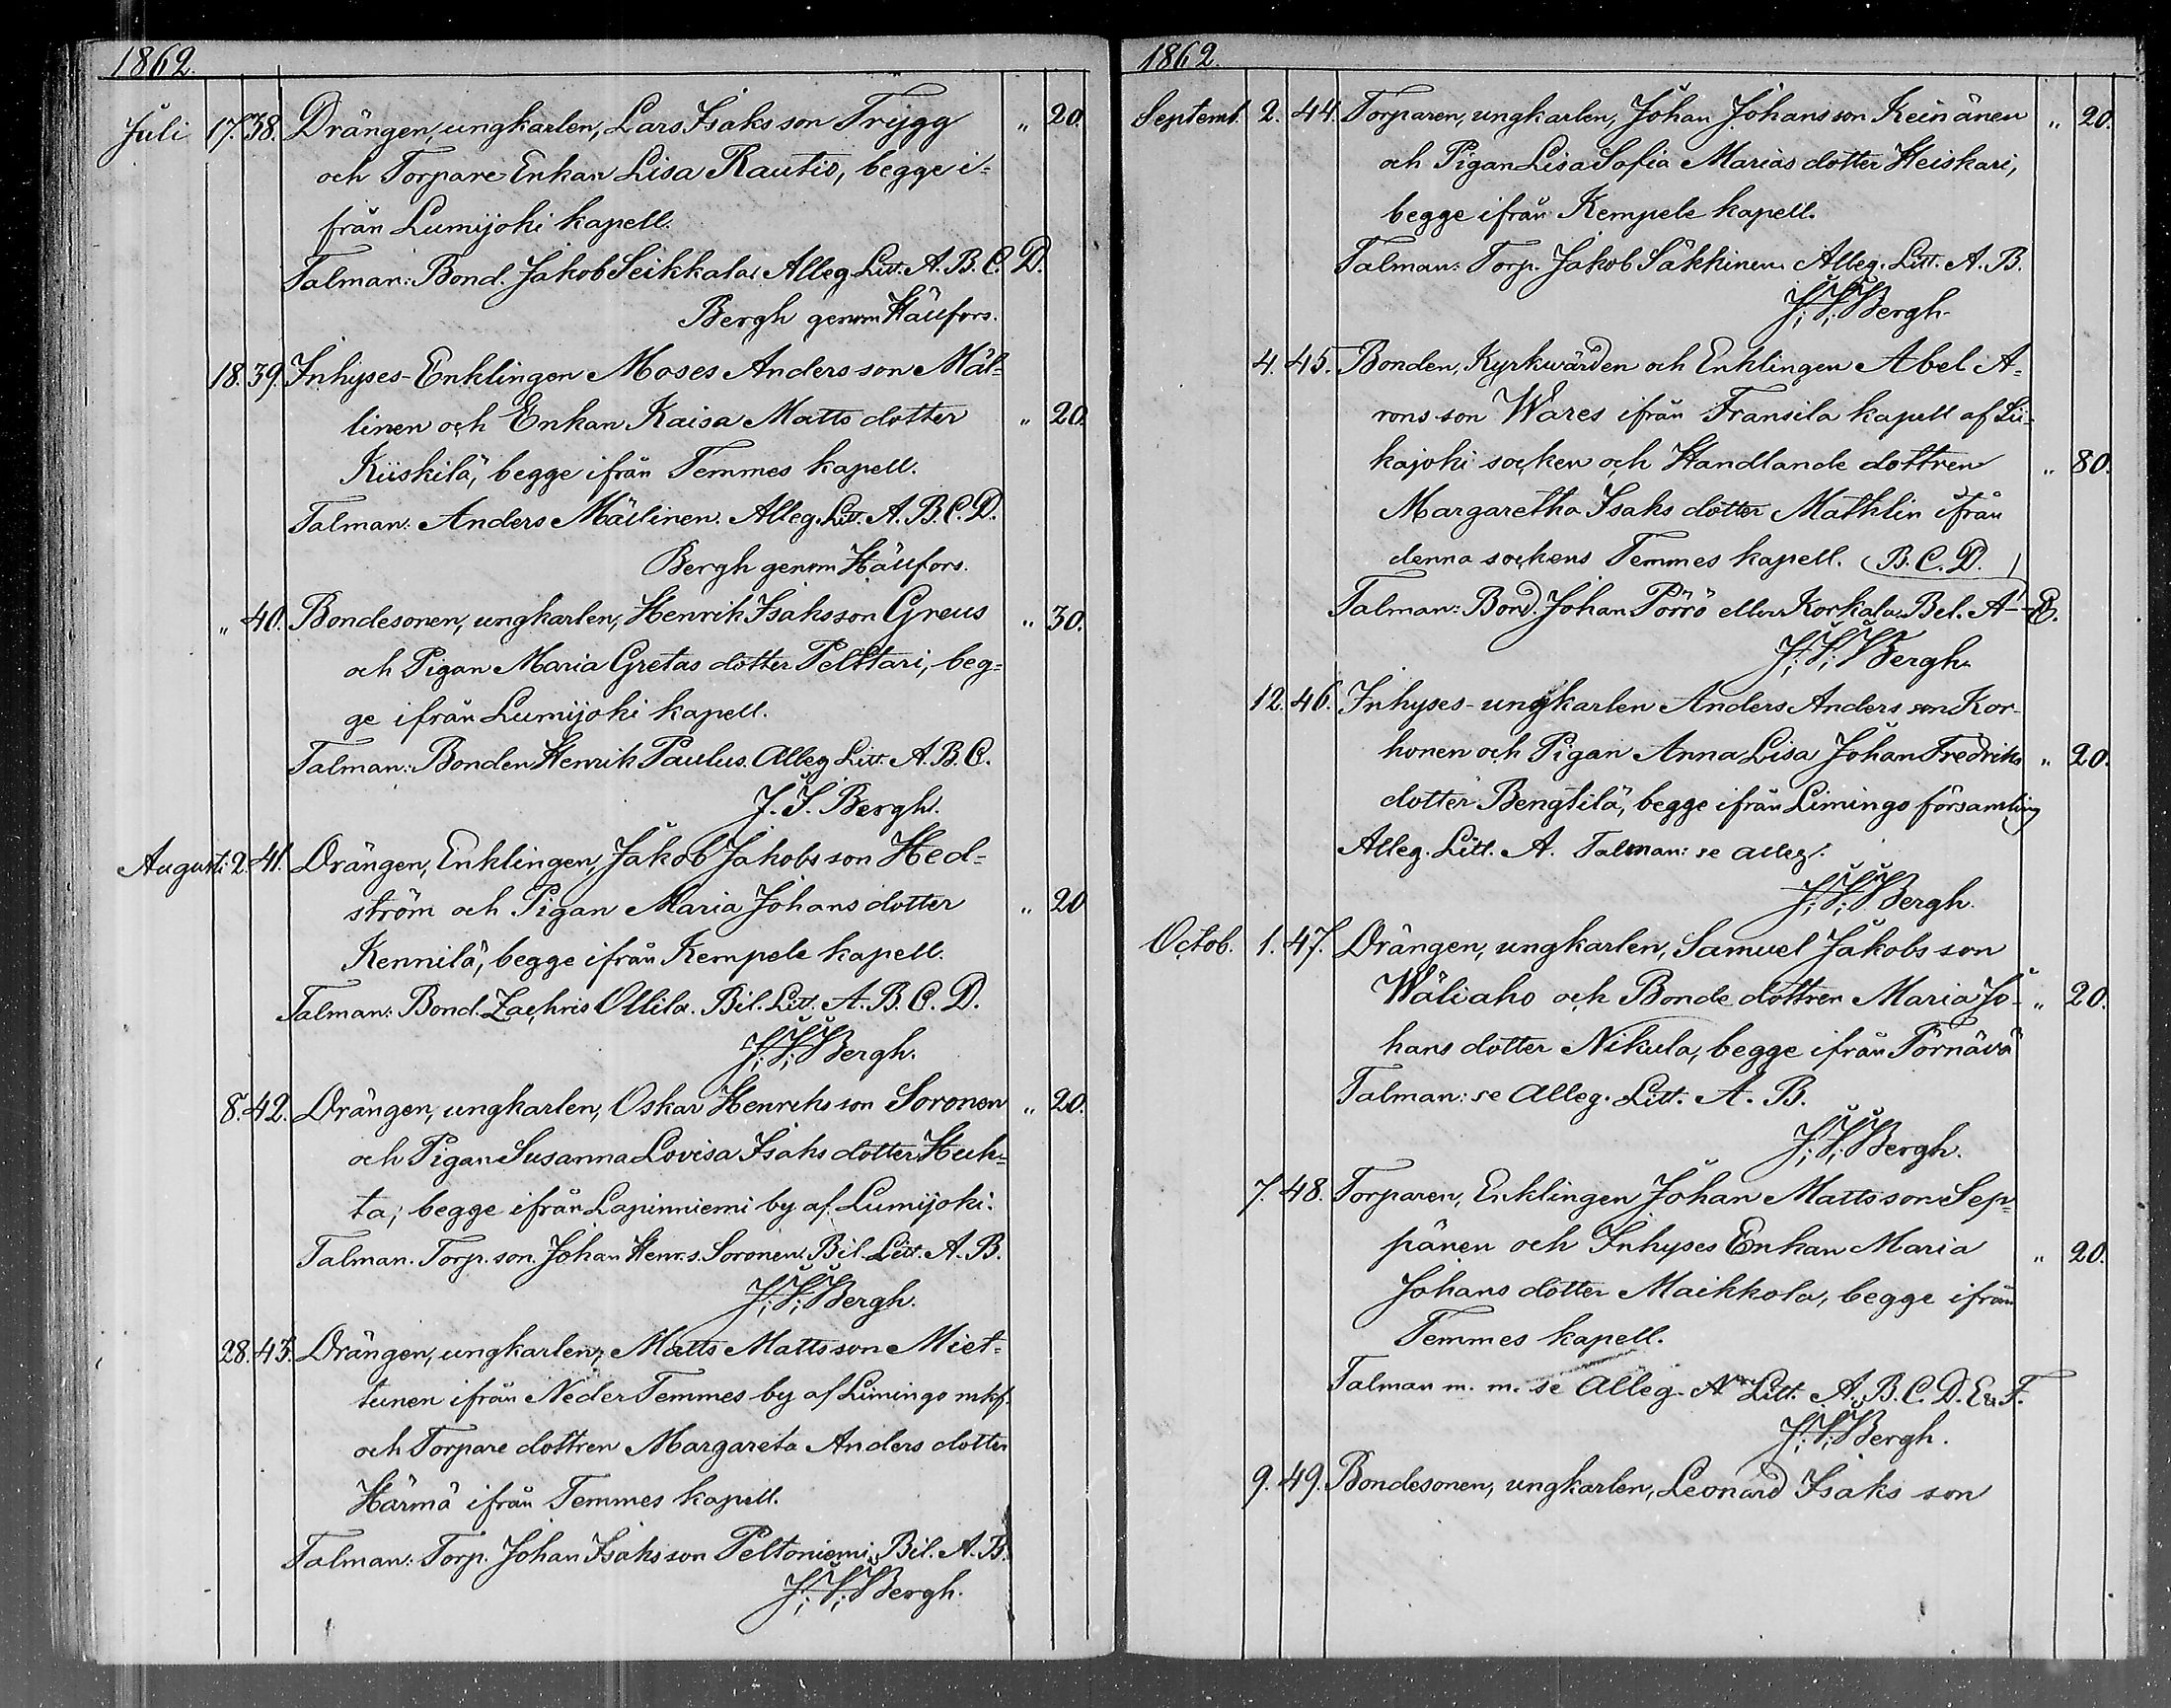 1862.
Juli 17. 38. Drängen, ungkarlen, Lars Isaks son Trygg „ 20.
och Torpare Enkan Lisa Rautio, begge i-
från Lumijoki kapell.
Talman: Bond. Jakob Seikkala. Alleg. Litt. A. B. C. D.
Bergh genom Häufors.
18. 39. Inhyses-Enklingen Moses Anders son Mäl-
linen och Enkan Kaisa Matts dotter „ 20.
Kiiskilä, begge ifrån Temmes kapell.
Talman: Anders Mällinen. Alleg. Litt. A. B. C. D.
Bergh genom Häufors.
„ 40. Bondesonen, ungkarlen, Henrik Isaksson Greus „ 30.
och Pigan Maria Gretas dotter Pelttari, beg-
ge ifrån Lumijoki kapell.
Talman: Bonden Henrik Paulus. Alleg. Litt. A. B. C.
J. I. Bergh.
Augusti 2. 41. Drängen, Enklingen, Jakob Jakobs son Hed-
ström och Pigan Maria Johans dotter „ 20
Kennilä, begge ifrån Kempele kapell.
Talman: Bond. Zachris Ollila. Bil. Litt. A. B. C. D.
J. I. Bergh.
8. 42. Drängen, ungkarlen, Oskar Henriks son Soronen „ 20.
och Pigan Susanna Lovisa Isaks dotter Huh-
ta, begge ifrån Lapinniemi by af Lumijoki.
Talman. Torp. son. Johan Henr. s. Soronen. Bil. Litt. A. B.
J. I. Bergh.
28. 43. Drängen, ungkarlen, Matts Matts son Miet-
tunen ifrån Neder Temmes by af Limingo mkf.
och Torpare dottren Margareta Anders dotter
Härmä ifrån Temmes kapell.
Talman: Torp. Johan Isaks son Peltoniemi. Bil. A. B.
J. I. Bergh.
1862.
Septemb. 2. 44. Torparen, ungkarlen, Johan Johans son Keinänen „ 20.
och Pigan Lisa Sofia Marias dotter Heiskari,
begge ifrån Kempele kapell.
Talman: Torp. Jakob Säkkinen. Alleg. Litt. A. B.
J. I. Bergh.
4. 45. Bonden, Kyrkwärden och Enklingen Abel A-
rons son Wares ifrån Fransila kapell af Sii-
kajoki socken och Handlande dottren „ 80.
Margaretha Isaks dotter Mathlin ifrån
denna sockens Temmes kapell. B. C. D.
Talman: Bond. Johan Pörrö eller Korkala. Bel. A - E.
J. I. Bergh.
12. 46. Inhyses-ungkarlen Anders Anders son Kor-
honen och Pigan Anna Lisa Johan Fredriks „ 20.
dotter Bengtilä, begge ifrån Limingo församling
Alleg. Litt. A. Talman: se alleg.
J. I. Bergh.
Octob. 1. 47. Drängen, ungkarlen, Samuel Jakobs son
Wäliaho och Bonde dottren Maria Jo- „ 20.
hans dotter Nikula, begge ifrån Törnävä
Talman: se Alleg. Litt. A. B.
J. I. Bergh.
7. 48. Torparen, Enklingen Johan Matts son Sep-
pänen och Inhyses Enkan Maria „ 20.
Johans dotter Maikkola, begge ifrån
Temmes kapell.
Talman m. m. se Alleg. Litt. A. B. C. D. E & F.
J. I. Bergh.
9. 49. Bondesonen, ungkarlen, Leonard Isaks son